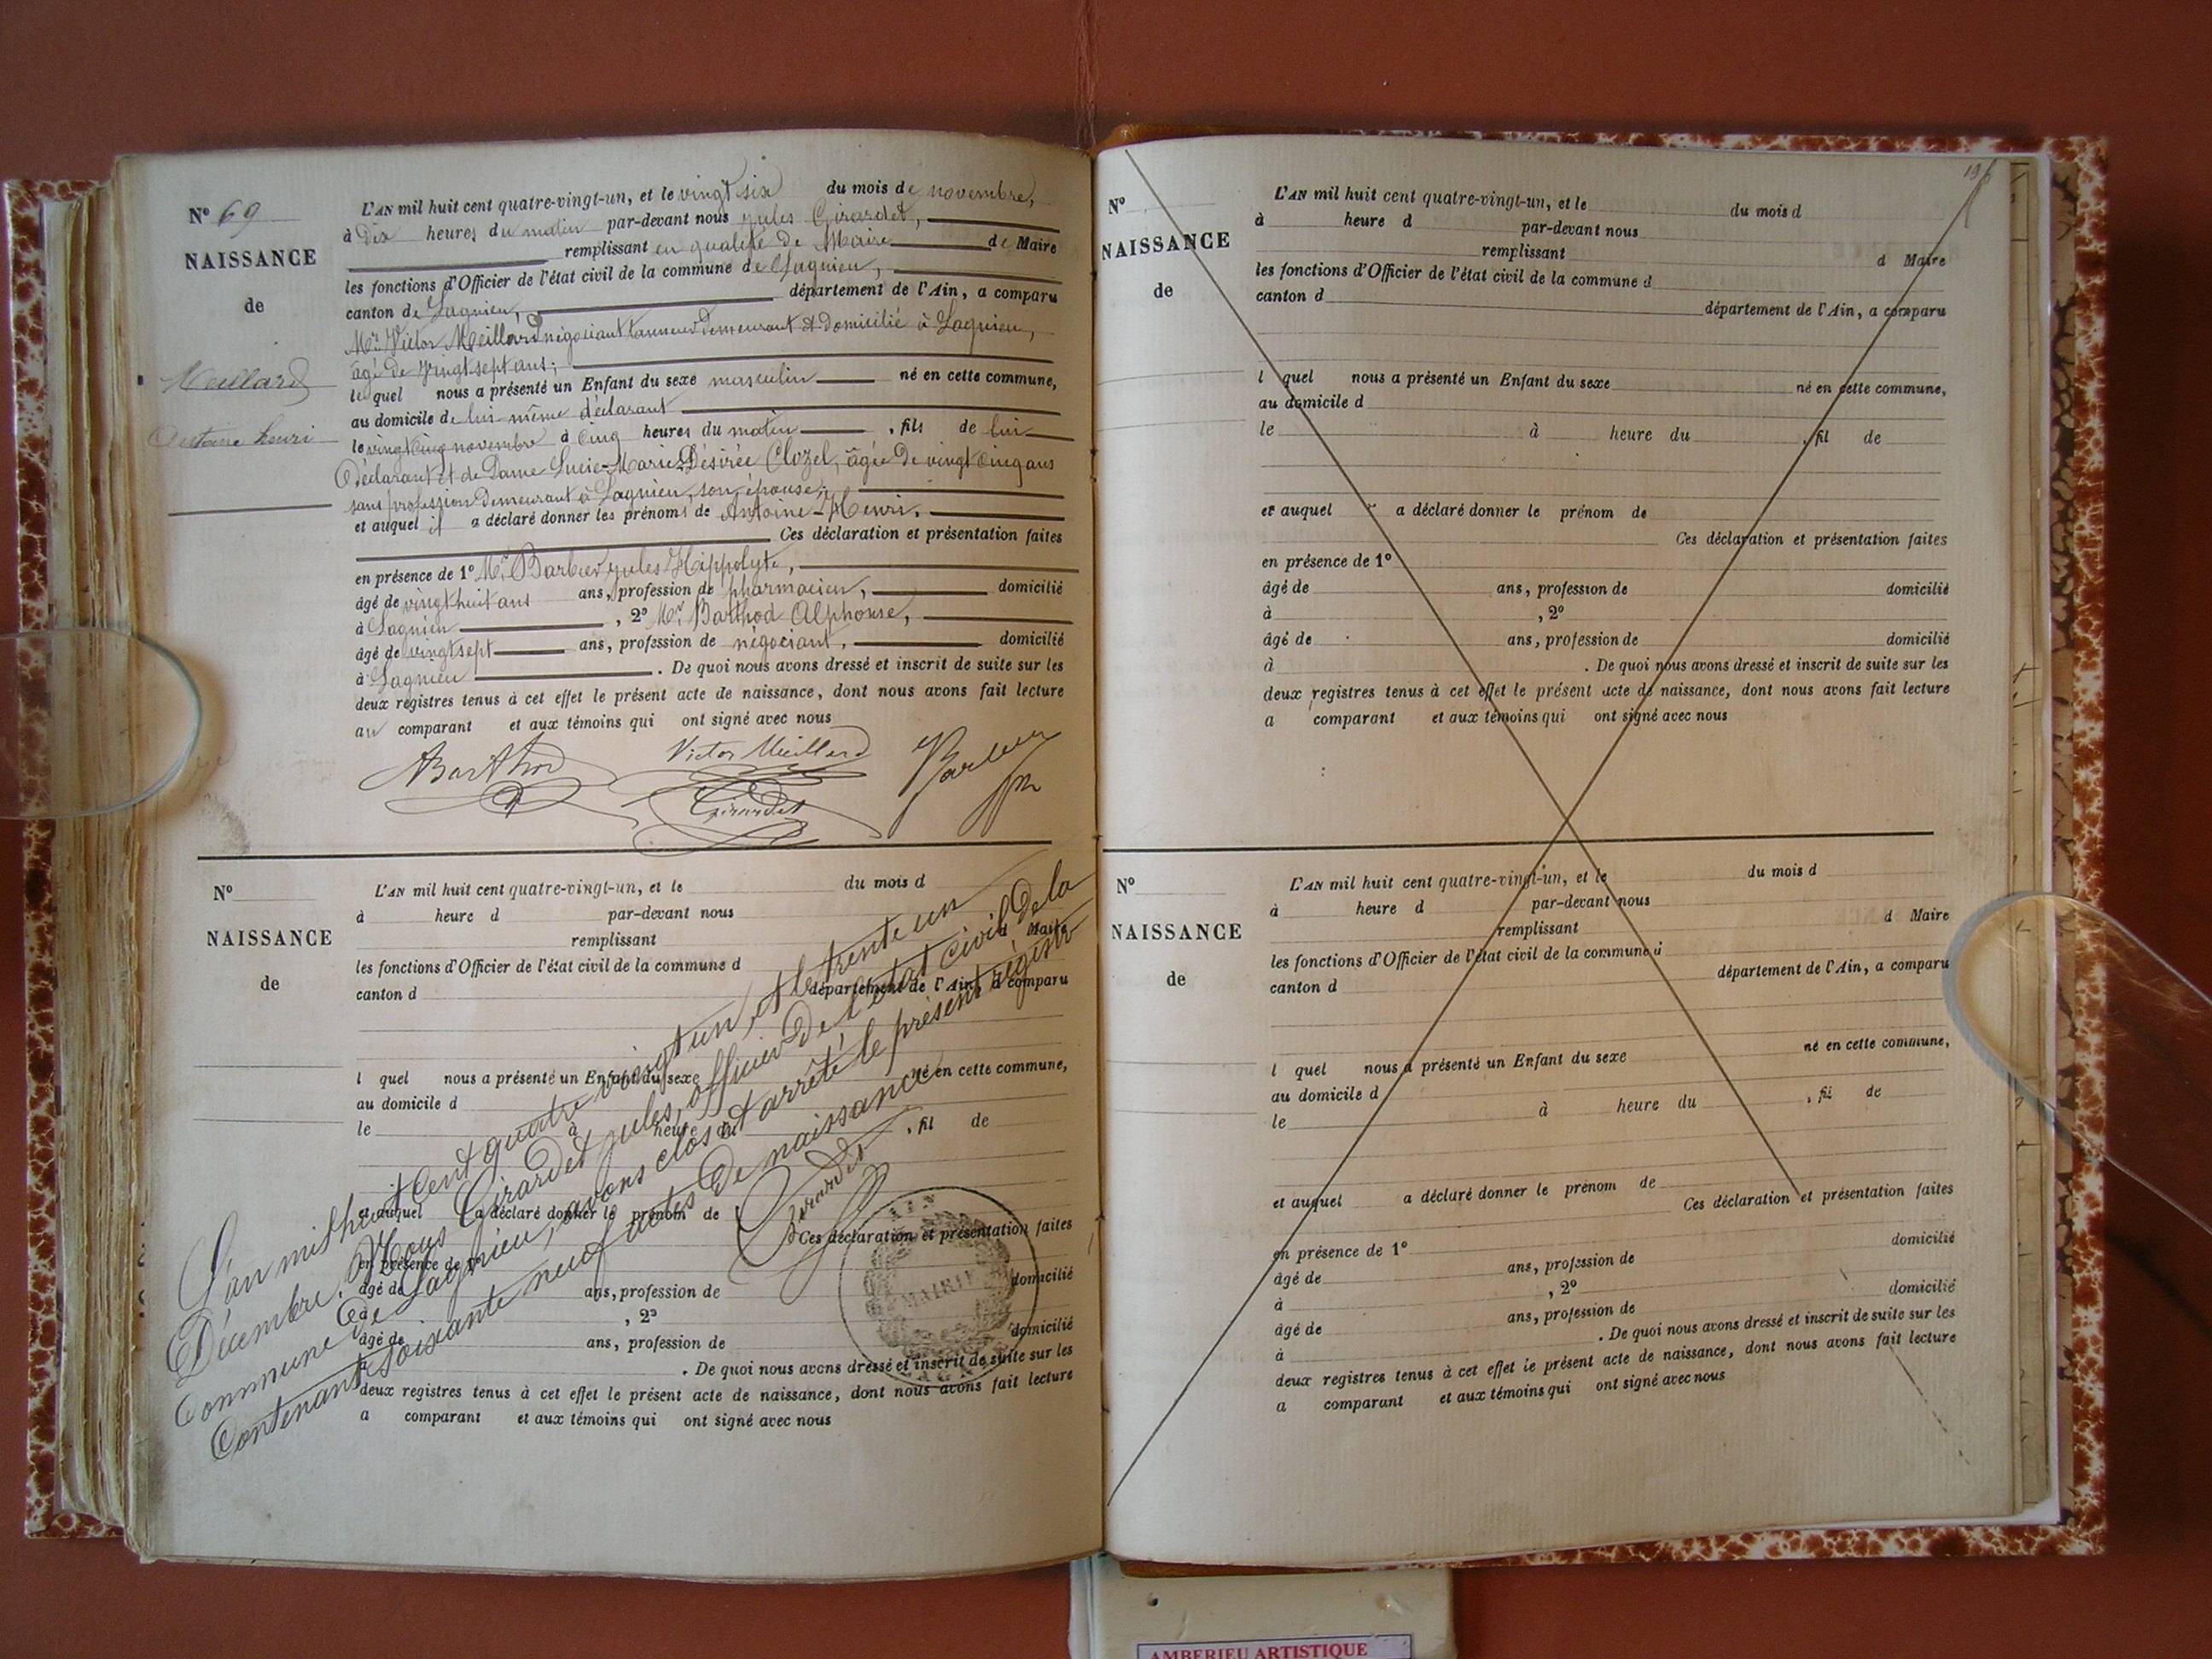 N° 69
NAISSANCE
de
Meillard
Antoine henri
L'AN mil huit cent quatre-vingt-un, et le vingt six du mois de novembre,
à dix heures du matin par-devant nous jules Girardet,
remplissant en qualité de Maire de Maire
les fonctions d'Officier de l'état civil de la commune de Lagnieu,
canton de Lagnieu, département de l'Ain, a comparu
Mr. Victor Meillard négociant tanneur demeurant et domicilié à Lagnieu,
âgé de vingt sept ans;
lequel nous a présenté un Enfant du sexe masculin né en cette commune,
au domicile de lui même déclarant
le vingt cinq novembre à cinq heures du matin, fils de lui
déclarant et de Dame Lucie-Marie-Désirée Clozel, âgée de vingt cinq ans
sans profession demeurant à Lagnieu, son épouse;
et auquel il a déclaré donner les prénoms de Antoine-Henri.
Ces déclaration et présentation faites
en présence de 1° Mr. Barbier jules Hippolyte,
âgé de vingt huit ans ans, profession de pharmacien, domicilié
à Lagnieu, 2° Mr. Barthod Alphonse,
âgé de vingt sept ans, profession de négociant, domicilié
à Lagnieu. De quoi nous avons dressé et inscrit de suite sur les
deux registres tenus à cet effet le présent acte de naissance, dont nous avons fait lecture
au comparant et aux témoins qui ont signé avec nous
ABarthod Victor Meillard Barbier
Girardet
N°
NAISSANCE
de
L'AN mil huit cent quatre-vingt-un, et le du mois d
à heure d par-devant nous
remplissant d Maire
les fonctions d'Officier de l'état civil de la commune d
canton d département de l'Ain, a comparu
l quel nous a présenté un Enfant du sexe né en cette commune,
au domicile d
le à heure du , fil de
et auquel a déclaré donner le prénom de
Ces déclaration et présentation faites
en présence de 1°
âgé de ans, profession de domicilié
à , 2°
âgé de ans, profession de domicilié
à . De quoi nous avons dressé et inscrit de suite sur les
deux registres tenus à cet effet le présent acte de naissance, dont nous avons fait lecture
a comparant et aux témoins qui ont signé avec nous
L'an mil huit cent quatre vingt un, et le trente un
Décembre. Nous Girardet jules, officier de l'état civil de la
Commune de Lagnieu, avons clos et arrêté le présent registre
Contenant soixante neuf actes de naissance
Girardet
AIN
MAIRIE
196
N°
NAISSANCE
de
L'AN mil huit cent quatre-vingt-un, et le du mois d
à heure d par-devant nous
remplissant d Maire
les fonctions d'Officier de l'état civil de la commune d
canton d département de l'Ain, a comparu
l quel nous a présenté un Enfant du sexe né en cette commune,
au domicile d
le à heure du , fil de
et auquel a déclaré donner le prénom de
Ces déclaration et présentation faites
en présence de 1°
âgé de ans, profession de domicilié
à , 2°
âgé de ans, profession de domicilié
à . De quoi nous avons dressé et inscrit de suite sur les
deux registres tenus à cet effet le présent acte de naissance, dont nous avons fait lecture
a comparant et aux témoins qui ont signé avec nous
N°
NAISSANCE
de
L'AN mil huit cent quatre-vingt-un, et le du mois d
à heure d par-devant nous
remplissant d Maire
les fonctions d'Officier de l'état civil de la commune d
canton d département de l'Ain, a comparu
l quel nous a présenté un Enfant du sexe né en cette commune,
au domicile d
le à heure du , fil de
et auquel a déclaré donner le prénom de
Ces déclaration et présentation faites
en présence de 1°
âgé de ans, profession de domicilié
à , 2°
âgé de ans, profession de domicilié
à . De quoi nous avons dressé et inscrit de suite sur les
deux registres tenus à cet effet le présent acte de naissance, dont nous avons fait lecture
a comparant et aux témoins qui ont signé avec nous
AMBERIEU ARTISTIQUE